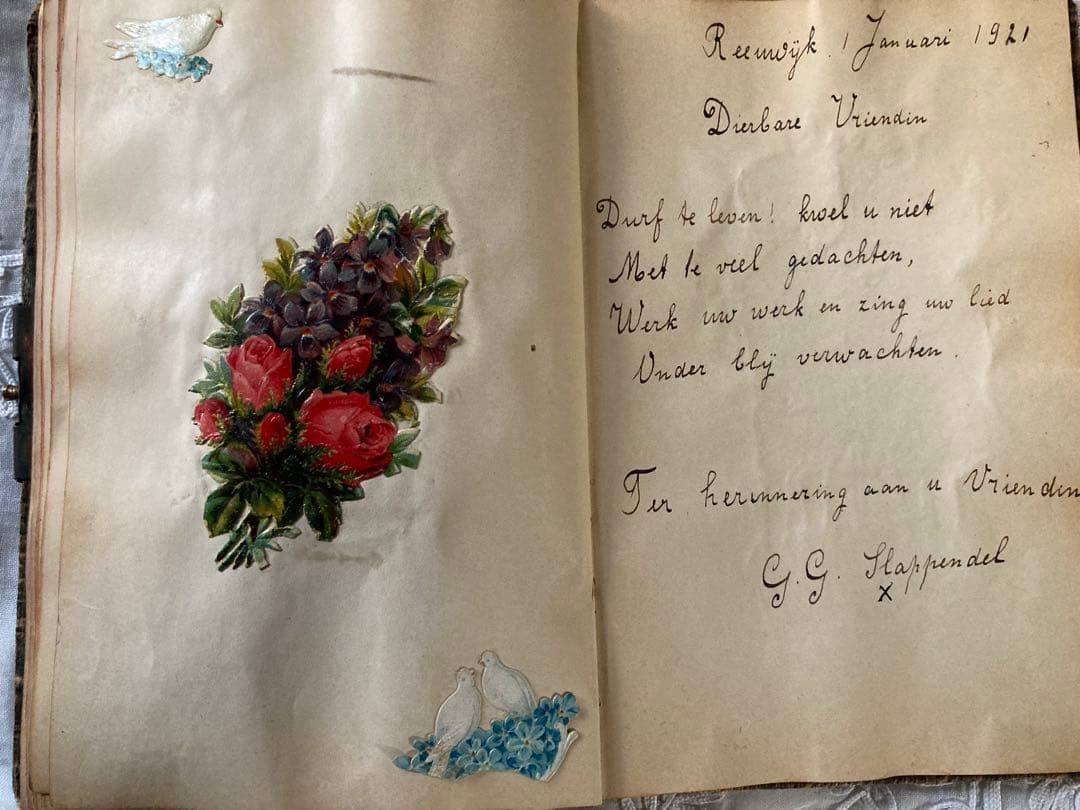 Reeuwijk. 1 Januari 1921
Dierbare Vriendin
Durf te leven! kwel u niet
Met te veel gedachten,
Werk uw werk en zing uw lied
Onder blij verwachten.
Ter herinnering aan u Vriendin
G. G. Slappendel
x